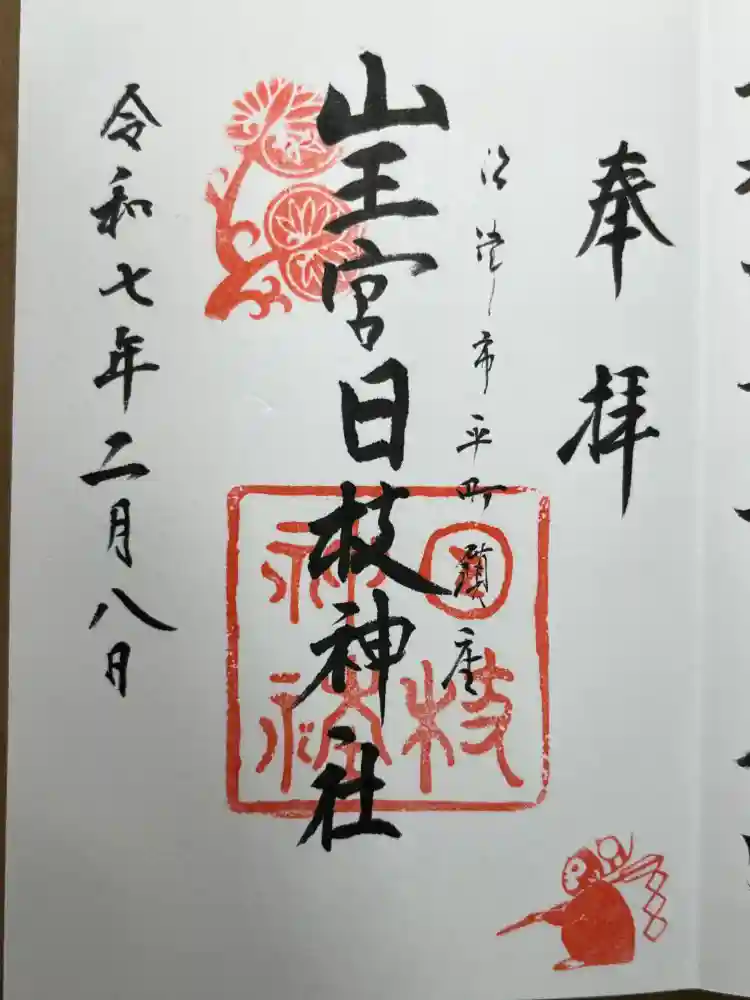 奉拝
沼津市平町鎮座
山王宮日枝神社
令和七年二月八日
日枝
神社